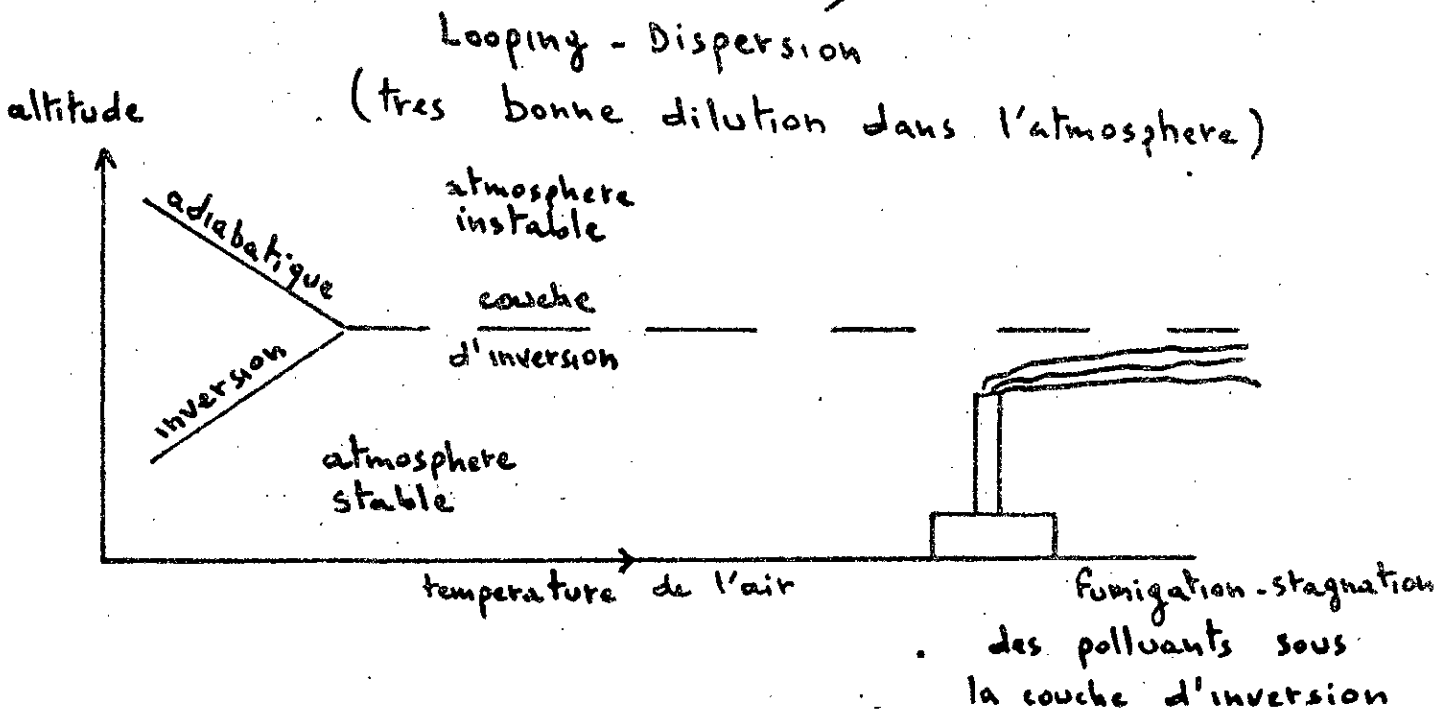 Looping - Dispersion
(tres bonne dilution dans l'atmosphere)
altitude
adiabatique
atmosphere
instable
couche
d'inversion
inversion
atmosphere
stable
temperature de l'air
fumigation-stagnation
des polluants sous
la couche d'inversion